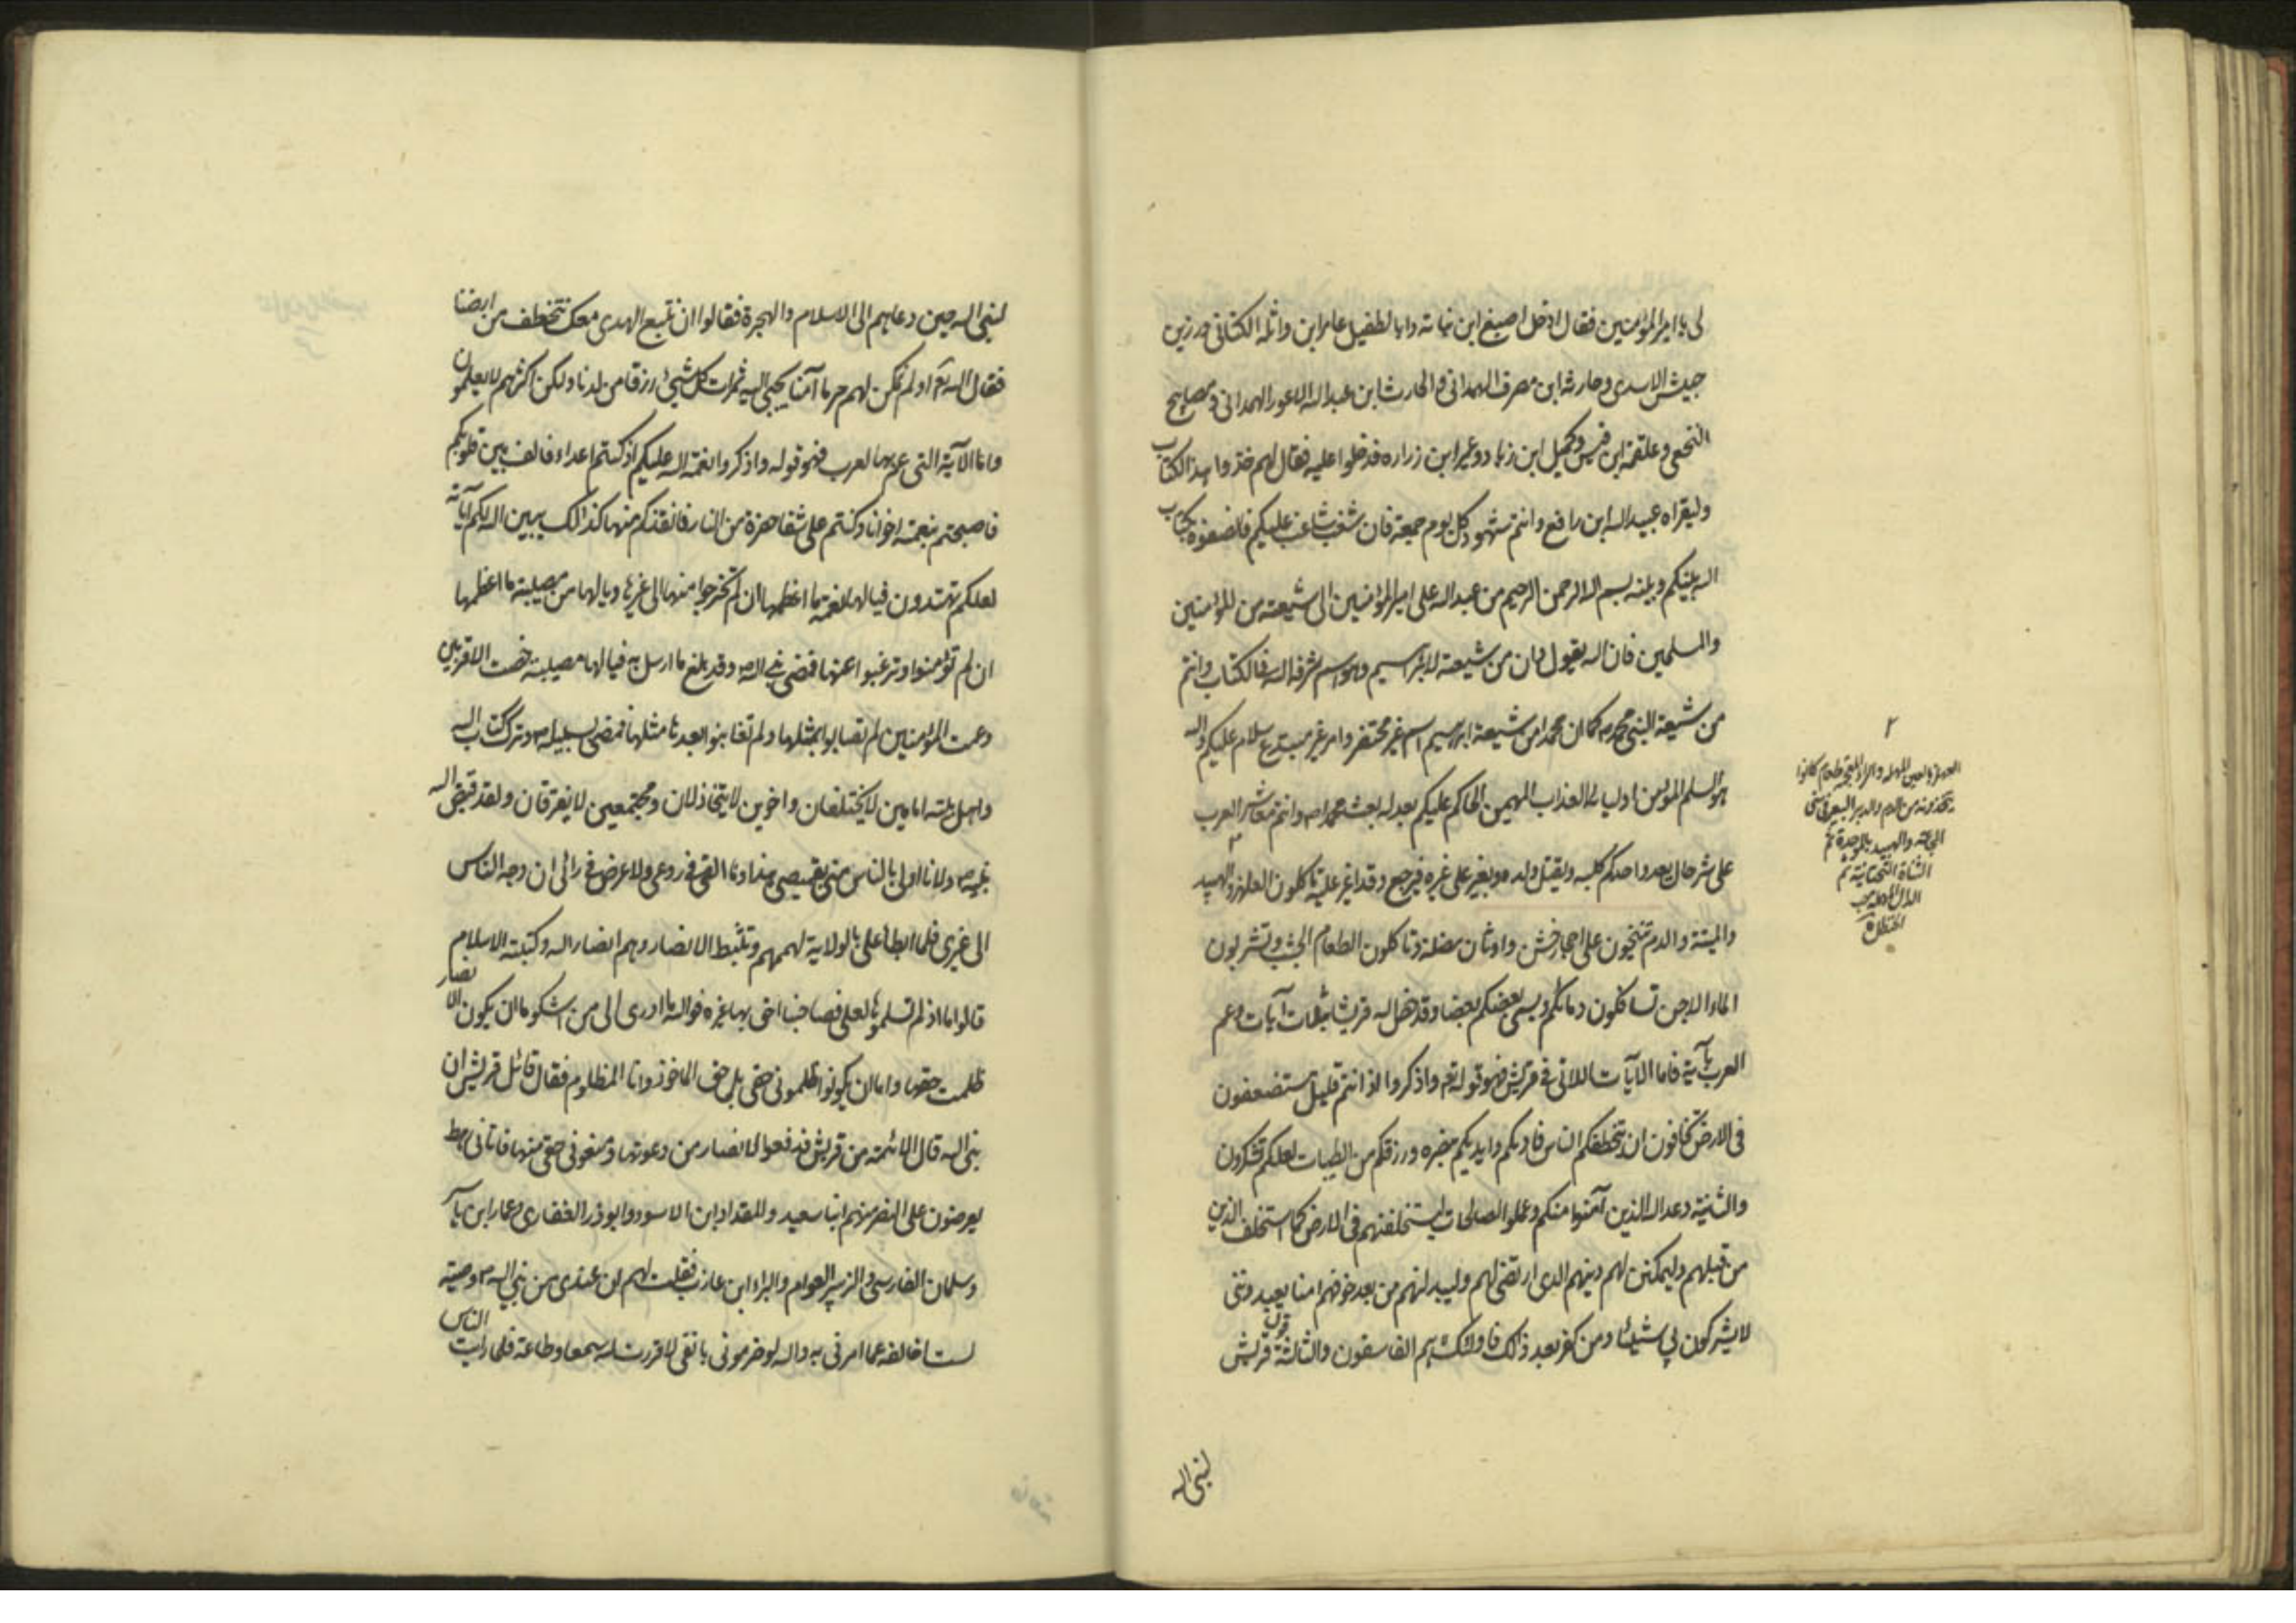 لى يا امير المؤمنين فقال ادخل اصبغ ابن نباته وابا لطفيل عامر ابن واثله الكنانى وزرين
حبيش الاسدى وحارثه ابن مصرف الهمدانى والحارث ابن عبد الله الاعور الهمدانى ومصابيح
النخعى وعلقمة ابن قيس وكميل ابن زياد وعمير ابن زراره فدخلوا عليه فقال لهم خذوا هذا الكتاب
وليقراه عبيد الله ابن رافع وانتم شهود كل يوم جمعة فان شغب شاغب عليكم فانصفوه بكتاب
الله بينكم وبينه بسم الله الرحمن الرحيم من عبد الله على امير المؤمنين الى شيعته من المؤمنين
والمسلمين فان الله يقول وان من شيعته لابراهيم وهو اسم شرفه الله فى الكتاب وانتم
من شيعة النبى محمد ص كما ان محمدا من شيعة ابراهيم اسم غير مختص وامر غير مبتدع وسلام عليكم والله
هو السلم المؤمن اوليائه العذاب المهيمن الحاكم عليكم بعدله بعث محمدا ص وانتم معاشر العرب
على شر حال يغدو احدكم كلبه ويقتل ولده ويغير على غيره فيرجع وقد اغير عليه تاكلون العلهز والهبيد
والميتة والدم تنيخون على احجار خشن واوثان مضلة وتاكلون الطعام الجشب وتشربون
الماء الاجن تسافكون دمائكم ويسبى بعضكم بعضا وقد خص الله قريشا بثلاث آيات وعم
العرب بآية فاما الآيات اللاتى فى قريش فهو قوله تعه واذكروا اذ انتم قليل مستضعفون
فى الارض تخافون ان يتخطفكم الناس فاويكم وايديكم بنصره ورزقكم من الطيبات لعلكم تشكرون
والثانية وعد الله الذين آمنوا منكم وعملوا الصالحات ليستخلفنهم فى الارض كما استخلف الذين
من قبلهم وليمكنن لهم دينهم الذى ارتضى لهم وليبدلنهم من بعد خوفهم امنا يعبدوننى
لا يشركون بى شيئا ومن كفر بعد ذالك فاولئك هم الفاسقون والثالثة قول قريش
لنبى الله
٢
العلهز بالعين المهملة والزاء المعجمة طعام كانوا
يتخذونه من الدم والوبر البعير فى سنى
المجاعة والهبيد بالموحدة ثم
المثناة التحتانية ثم
الدال المهملة حب
الحنظل
لنبى الله حين دعاهم الى الاسلام والهجرة فقالوا ان نتبع الهدى معك نتخطف من ارضنا
فقال الله تعه اولم نمكن لهم حرما آمنا يجبى اليه ثمرات كل شيئ رزقا من لدنا ولكن اكثرهم لا يعلمون
واما الآية التى عم بها العرب فهو قوله واذكروا نعمة الله عليكم اذ كنتم اعداء فالف بين قلوبكم
فاصبحتم بنعمته اخوانا وكنتم على شفا حفرة من النار فانقذكم منها كذالك يبين الله لكم آياته
لعلكم تهتدون فيا لها نعمة ما اعظمها ان لم تخرجوا منها الى غيرها ويا لها من مصيبة ما اعظمها
ان لم تؤمنوا وترغبوا عنها فمضى نبى الله ص وقد بلغ ما ارسل به فيا لها مصيبة خصت الاقربين
وعمت المؤمنين لم تصابوا بمثلها ولم تعاينوا بعدها مثلها فمضى لسبيله ص وترك كتاب الله
واهل بيته امامين لا يختلفان واخوين لا يتخاذلان ومجتمعين لا يفترقان ولقد قبض الله
نبيه ص ولانا اولى بالناس منى بقميصى هذا وما القى فى روعى ولا عرض فى رائى ان وجه الناس
الى غيرى فلما ابطأ على بالولاية لهممهم وتثبط الانصار وهم انصار الله وكتيبة الاسلام
قالوا اما اذ لم تسلموها لعلى فصاحبنا احق بها من غيره فوالله ما ادرى الى من اشكو اما ان يكون الانصار
ظلمت حقها واما ان يكونوا ظلمونى حقى بل حقى الماخوذ وانا المظلوم فقال قائل قريش ان
نبى الله قال الائمة من قريش فدفعوا الانصار من دعوتها ومنعونى حقى منها فاتانى رهط
يعرضون على النصر منهم ابنا سعيد والمقداد ابن الاسود وابو ذر الغفارى وعمار ابن ياسر
وسلمان الفارسى والزبير العوام والبراء ابن عازب فقلت لهم ان عندى من نبى الله ص وصية
لست اخالفه عما امرنى به والله لو خزمونى بانفى لاقررت لله سمعا وطاعة فلما رايت الناس